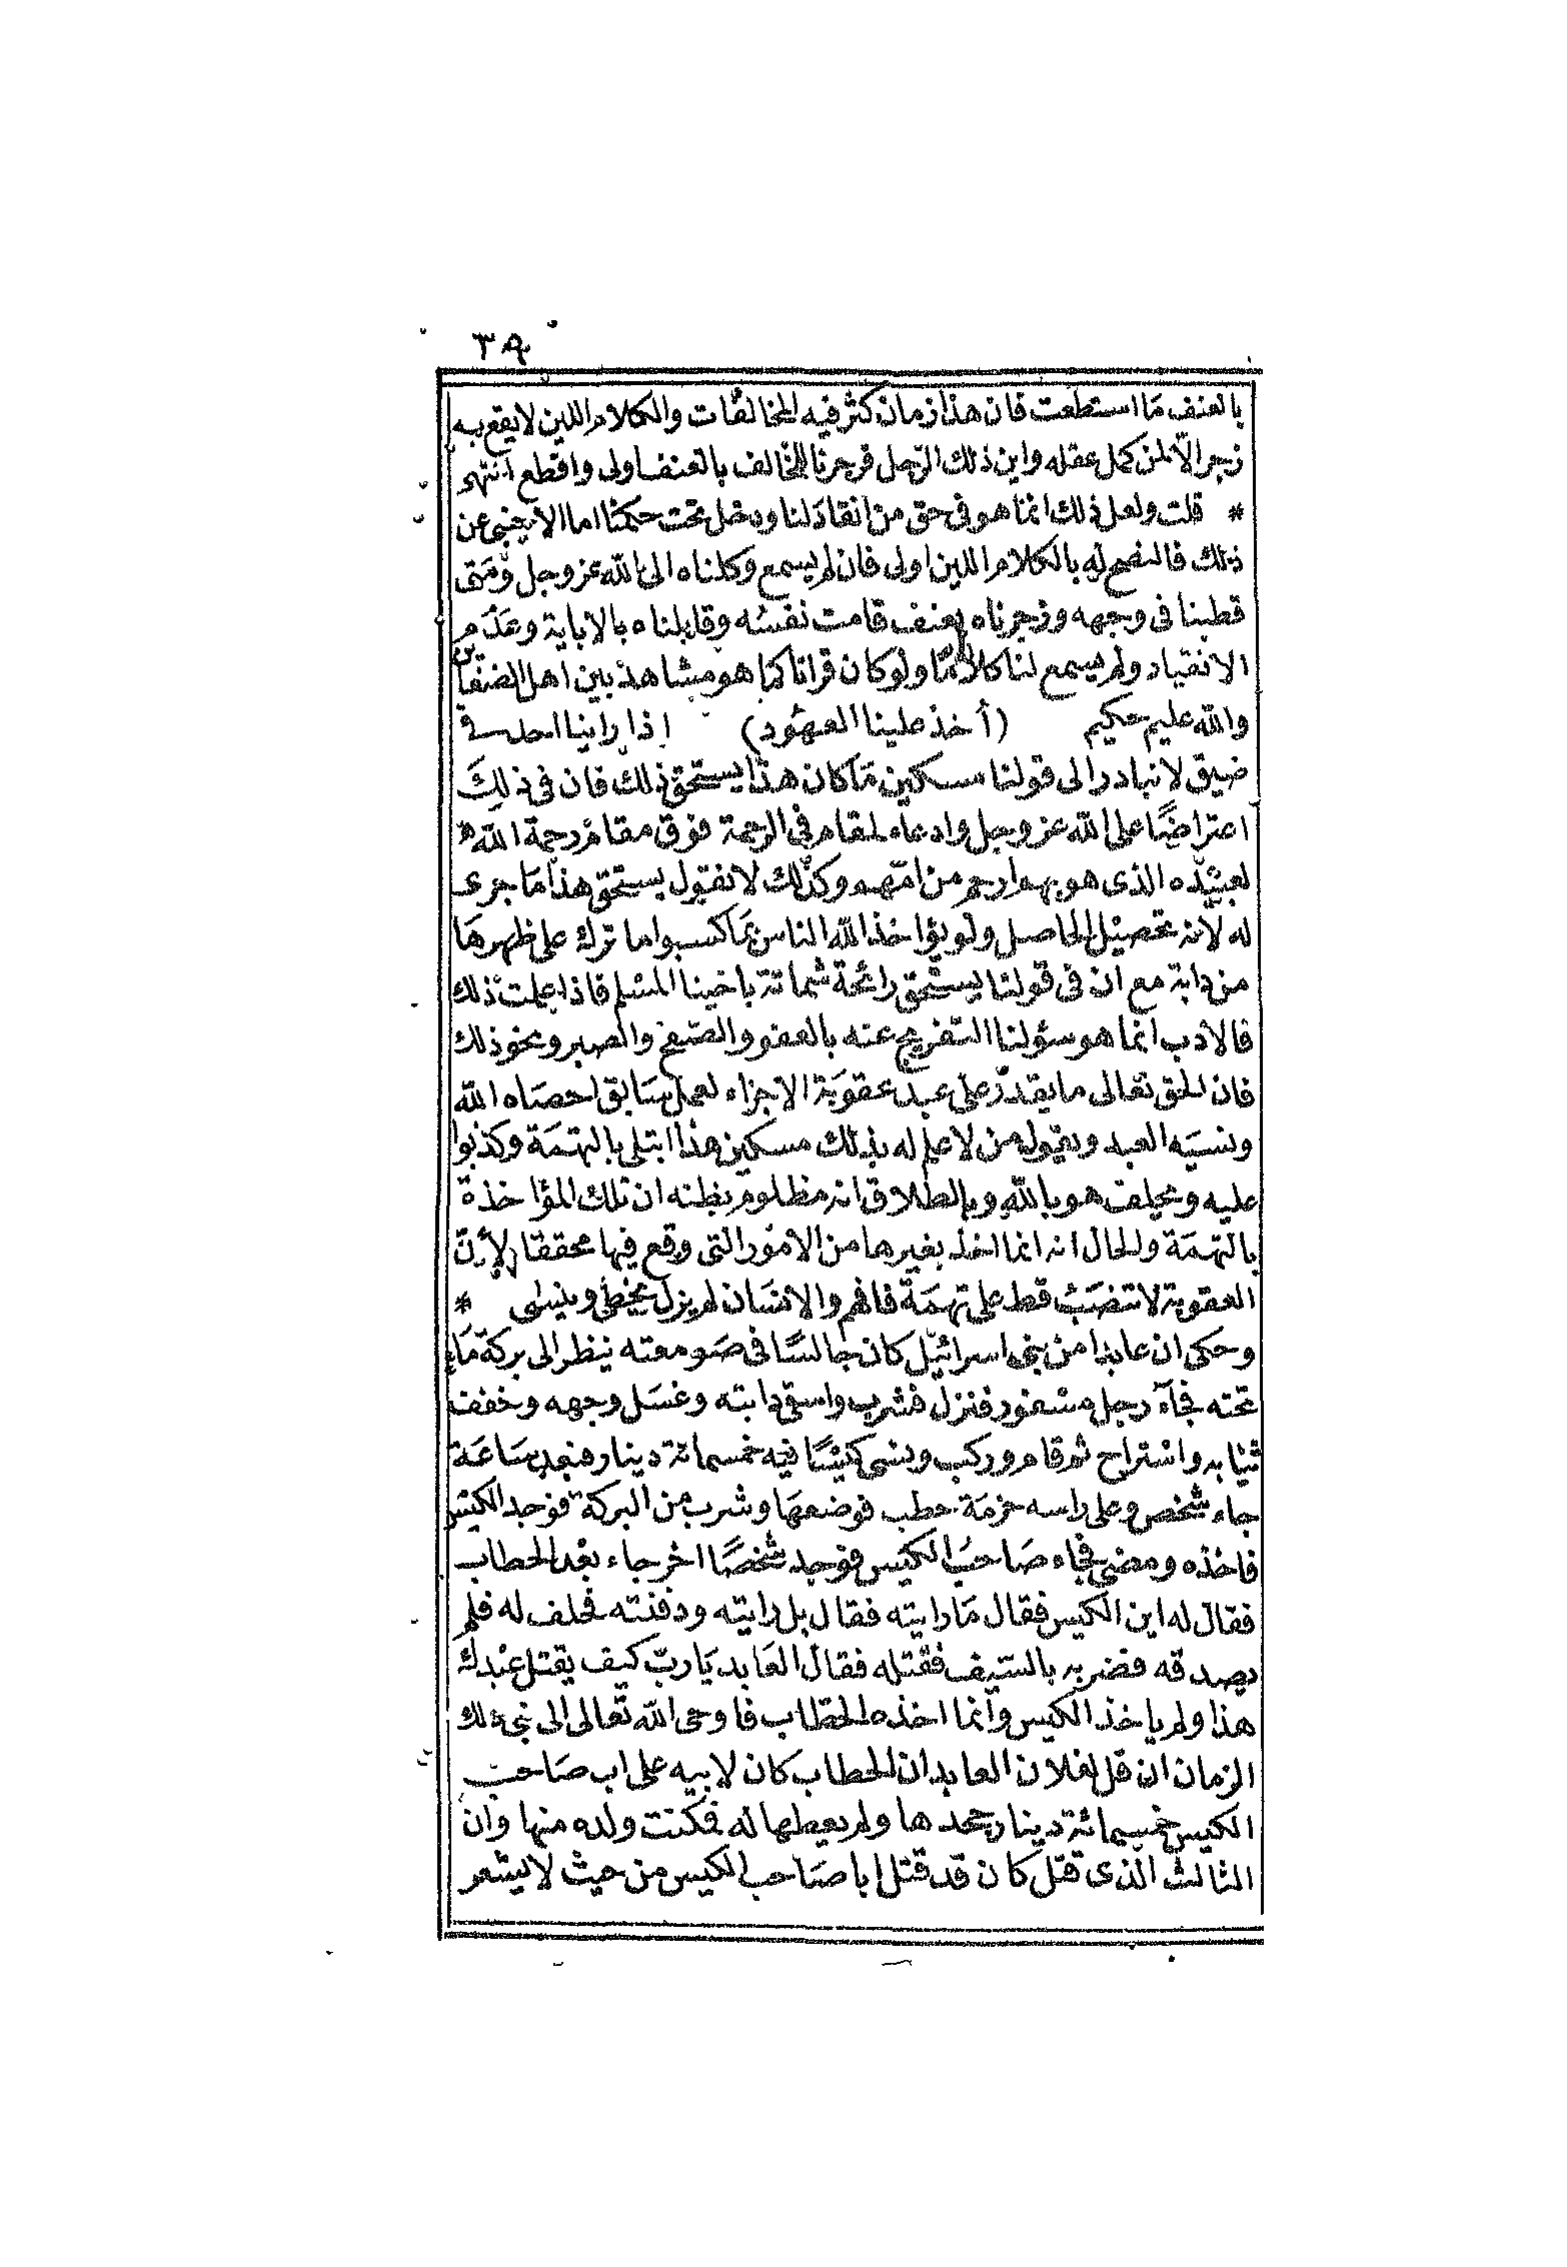 ٣٩
بالعنف ما استطعت فان هذا زمان كثر فيه المخالفات والكلام اللين لا يقع به
زجر الا لمن كمل عقله واين ذلك الرجل فزجرنا للمخالف بالعنف اولى واقطع انتهى
* قلت ولعل ذلك انما هو فى حق من انقاد لنا ودخل تحت حكمنا اما الاجنبى عن
ذلك فالنصح له بالكلام اللين اولى فان لم يسمع وكلناه الى الله عز وجل ومتى
قطبنا فى وجهه وزجرناه بعنف قامت نفسه وقابلناه بالاباية وعدم
الانقياد ولم يسمع لنا كلامًا ولو كان قرانا كما هو مشاهد بين اهل الضغاين
والله عليم حكيم (أخذ علينا العهود) اذا راينا احدا فى
ضيق لا نبادر الى قولنا مسكين ما كان هذا يستحق ذلك فان فى ذلك
اعتراضًا على الله عز وجل وادعاء لمقام فى الرحمة فوق مقام رحمة الله *
لعبيده الذى هو بهم ارحم من امتهم وكذلك لا نقول يستحق هذا ما جرى
له لانه تحصيل الحاصل ولو يؤاخذ الله الناس بما كسبوا ما ترك على ظهرها
من دابة مع ان فى قولنا يستحق رائحة شماتة باخينا المسلم فاذا علمت ذلك
فالادب انما هو سؤلنا التفريج عنه بالعفو والصفح والصبر ونحو ذلك
فان الحق تعالى ما يقدر على عبد عقوبة الا جزاء لعمل سابق احصاه الله
ونسيه العبد ويقول من لا علم له بذلك مسكين هذا ابتلى بالتهمة وكذبوا
عليه ويحلف هو بالله وبالطلاق انه مظلوم بظنه ان تلك المؤاخذة
بالتهمة والحال انه انما اخذ بغيرها من الامور التى وقع فيها محققا لأن
العقوبة لا تنصب قط على تهمة فافهم والانسان لم يزل يخطى وينسى *
وحكى ان عابدا من بنى اسرائيل كان جالسًا فى صومعته ينظر الى بركة ماء
تحته فجآء رجل مسفود فنزل فشرب واسقى دابته وغسل وجهه وخفف
ثيابه واستراح ثم قام وركب ونسى كيسًا فيه خمسمائة دينار فبعد ساعة
جاء شخص وعلى راسه حزمة حطب فوضعها وشرب من البركة فوجد الكيس
فاخذه ومضى فجاء صاحب الكيس فوجد شخصًا اخر جاء بعد الحطاب
فقال له اين الكيس فقال ما رايته فقال بل رايته ودفنته فحلف له فلم
يصدقه فضربه بالسيف فقتله فقال العابد يا رب كيف يقتل عبدك
هذا ولم ياخذ الكيس وانما اخذه الحطاب فاوحى الله تعالى الى نبى ذلك
الزمان ان قل لفلان العابد ان الحطاب كان لابيه على اب صاحب
الكيس خمسمائة دينار جحدها ولم يعطها له فمكنت ولده منها وان
الثالث الذى قتل كان قد قتل ابا صاحب الكيس من حيث لا يشعر